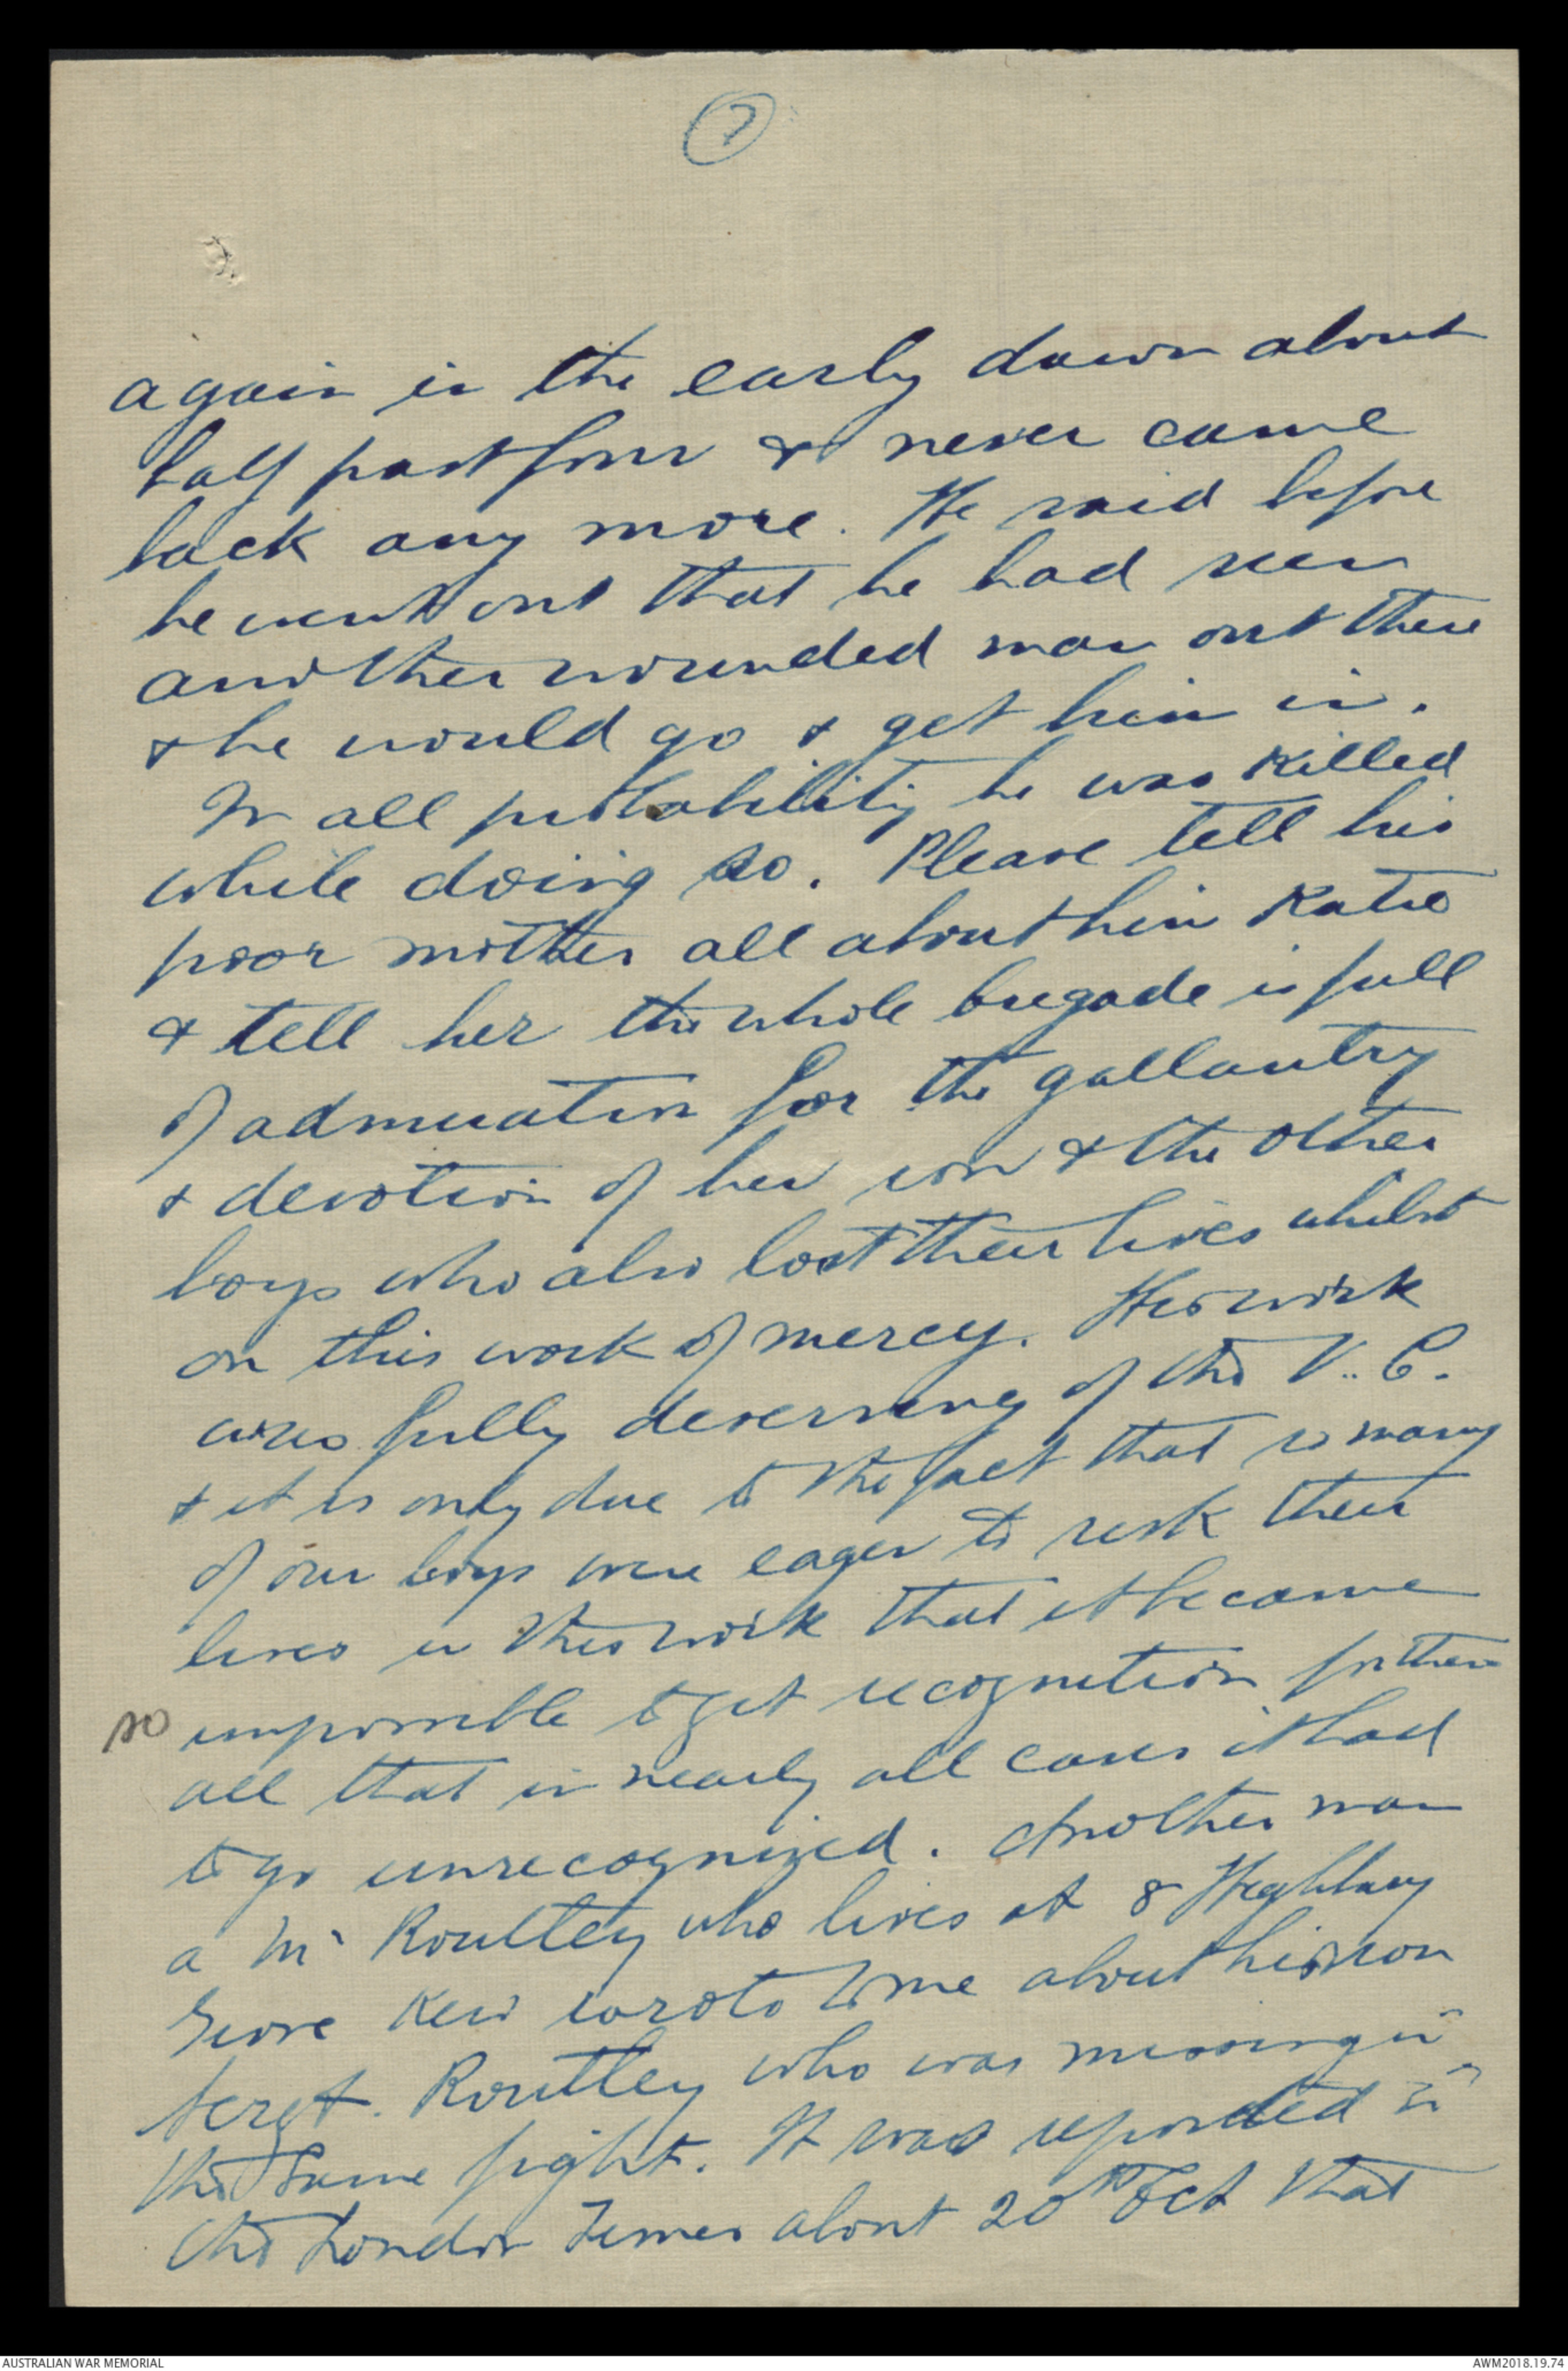 7
again in the early dawn about
half past four & never came
back any more. He said before
he went out that he had seen
another wounded man out there
& he would go & get him in.
In all probability he was killed
while doing so. Please tell his
poor mother all about him Katie
& tell her the whole brigade is full
of admiration for the gallantry
& devotion of her son & the other
boys who also lost their lives whilst
on this work of mercy. His work
was fully deserving of the V.C.
& it is only due to the fact that so many
of our boys were eager to risk their
lives in this work that it became
so impossible to get recognition for them
all that in nearly all cases it had
to go unrecognized. Another man
a Mr Routley who lives at 8 Highbury
Grove Kew wrote to me about his son
Sergt. Routley who was missing in
the same fight. It was reported in
the London Times about 20th Oct that
AUSTRALIAN WAR MEMORIAL
AWM2018.19.74